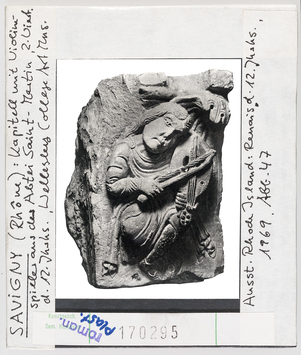 SAVIGNY (Rhône): Kapitell mit Violin-
spieler aus des Abtei Saint-Martin 2. Viert.
d. 12. Jhehs., Wellesley College Art Mus.
Ausst. Rhode Island: Renaiss. d. 12. Jhehs.,
1969, Abb. 47
roman.
Plast.
170295